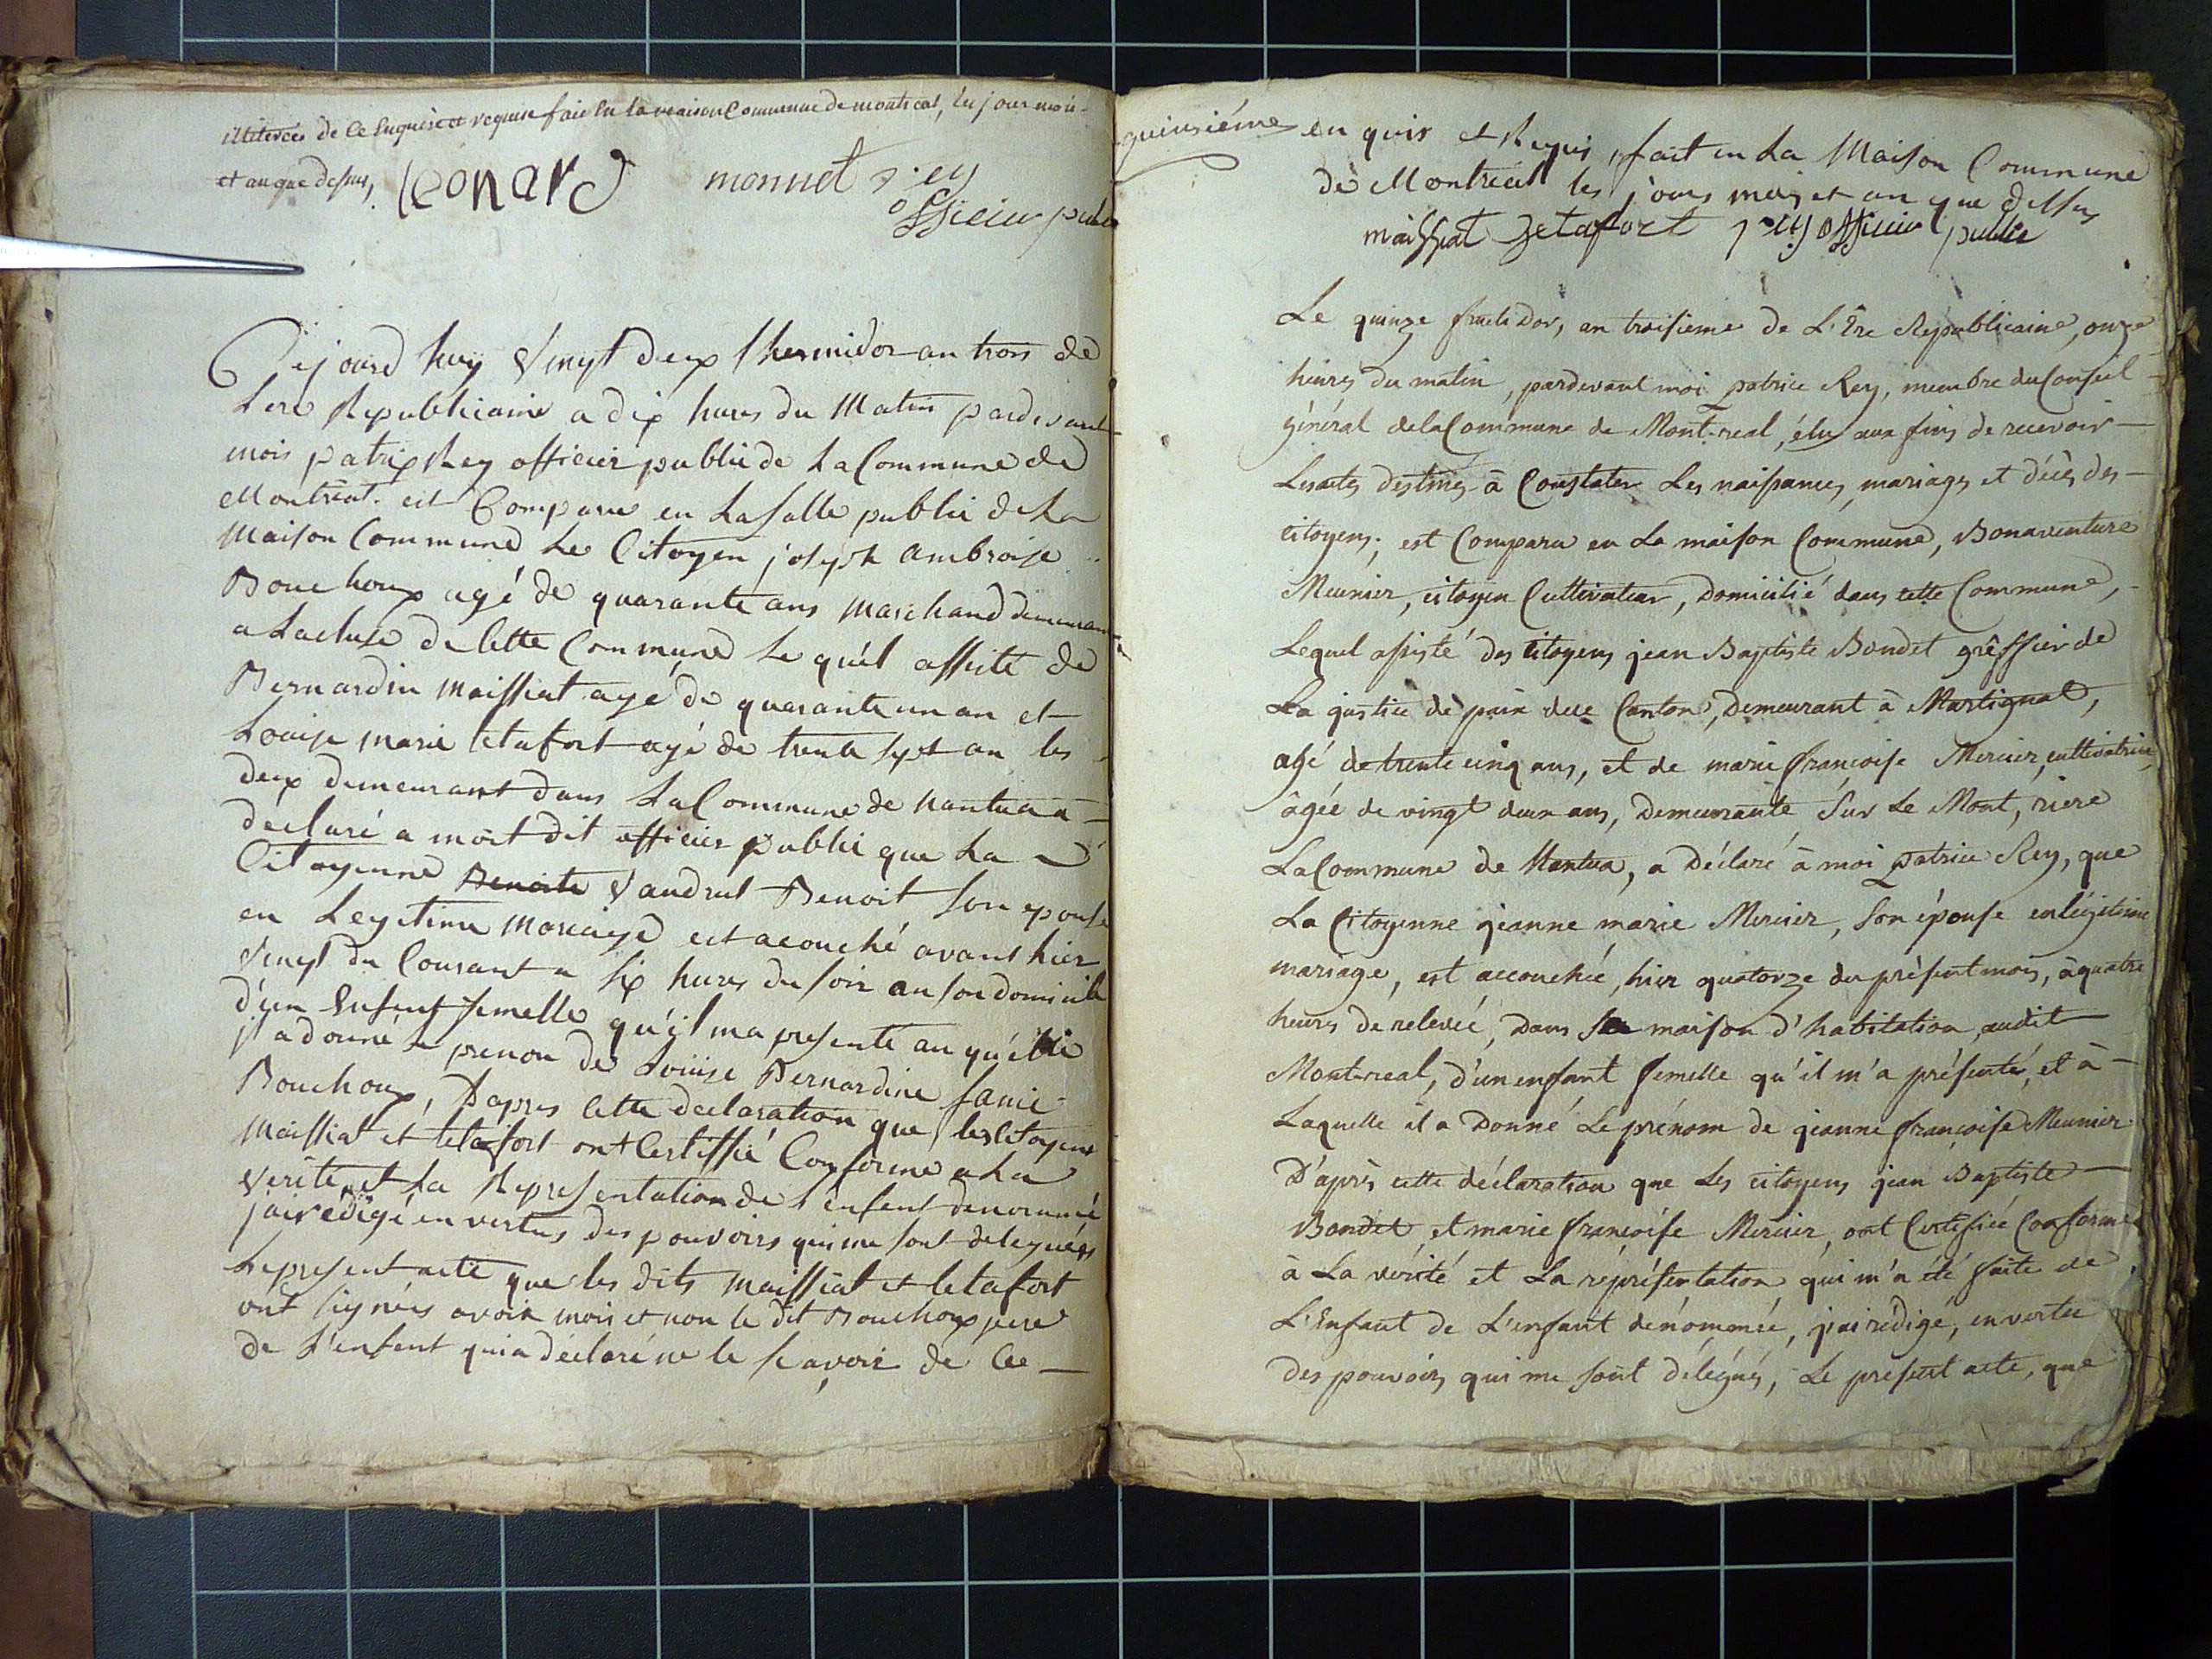 illiterés de ce Enquise et requise fait en la maison Commune de montreal, les jour mois
et an que dessus,
leonard monnet rey
officier public
Cejourd huy Vingt deux thermidor an trois de
Lere Republicaine a dix hures du Matin pardevant
mois patrix Rey officier public de La Commune de
Montréal est Comparu en La salle public de La
Maison Commune Le Citoyen joseph ambroise
Bouchoux agé de quarante ans Marchand demeurant
a Lacluse de Cette Commune Le quel assité de
Bernardin Maissiat agé de quarante un an et
Louise Marie letafort agé de trente sept an les
deux demeurant dans La Commune de Nantua a
declaré a moit dit officier public que La
Citoyenne Benoite Vaudrut Benoit son epouse
en Legitime Mariage est acouché avant hier
Vingt du Courant a six hures du soir an son domicile
d'un Enfent femelle qu'il ma presenté au quélle
jl a donné le prenon de Louise Bernardine fanie
Bouchoux, D'apres Cette declaration que les Citoyens
Maissiat et letafort ont Certiffié Conforme a La
verité et La Representation de l'enfent denommé
jai redigé en vertus des pouvoirs qui me sont delegués
Le present acte que les dits Maissiat et letafort
ont signés avoix mois et non le dit Bouchoux pere
de L'enfent qui a déclaré ne le scavoir de Ce
quinsiéme
en quis et Requis, fait en La Maison Commune
de Montréal les jours mois et an que dessus
maissiat Letafort rey officier public
Le quinze fructidor, an troisieme de L'Ere Republicaine, onze
heures du matin, pardevant moi patrice Rey, membre du Conseil
général de la Commune de Mont-real, élu aux fins de recevoir
Les actes destinés à Constater Les naissances, mariages et décès des
citoyens; est Comparu en La maison Commune, Bonaventure
Meunier, citoyen Cultivateur, Domicilié dans cette Commune,
Lequel assisté des citoyens jean Baptiste Bondet grêffier de
La justice de paix de ce Canton, Demeurant à Martignat,
agé de trente cinq ans, et de marie françoise Mercier, cultivatrice,
âgée de vingt deux ans, Demeurante Sur Le Mont, riere
La Commune de Nantua, a Déclaré à moi patrice Rey, que
La Citoyenne jeanne marie Mercier, Son épouse en légitime
mariage, est accouchée, hier quatorze du présent mois, à quatre
heures de relevée, Dans sa maison d'habitation, audit
Mont-real, d'un enfant femelle qu'il m'a présenté, et à
Laquelle il a Donné Le prénom de jeanne françoise Meunier
D'après cette déclaration que Les citoyens jean Baptiste
Bondet et marie françoise Mercier, ont Certifiée Conforme
à La vérité et La réprésentation qui m'a été faite de
L'Enfant de L'enfant dénommée, j'ai rédigé, en vertu
Des pouvoirs qui me sont délégués, Le présent acte, que